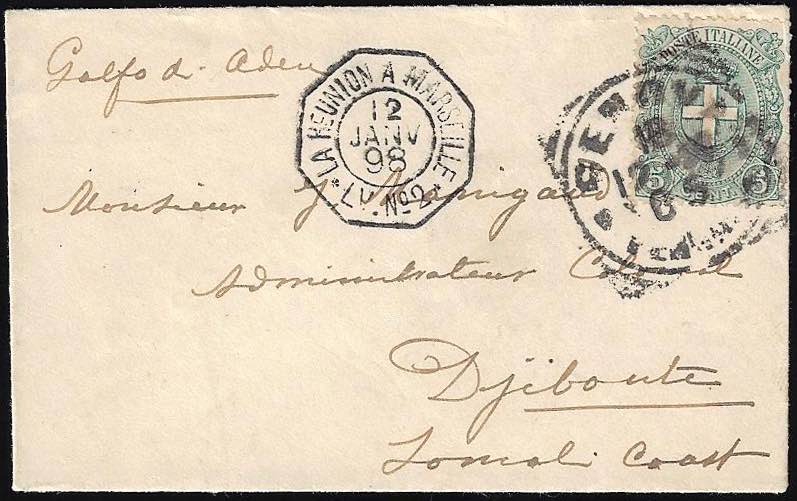 Golfo di Aden
LA REUNION A MARSEILLE
12
JANV
98
L.V. Nº2
POSTE ITALIANE
5 5
GENOVA
Monsieur J
Administrateur Colonial
Djiboute
Somali Coast